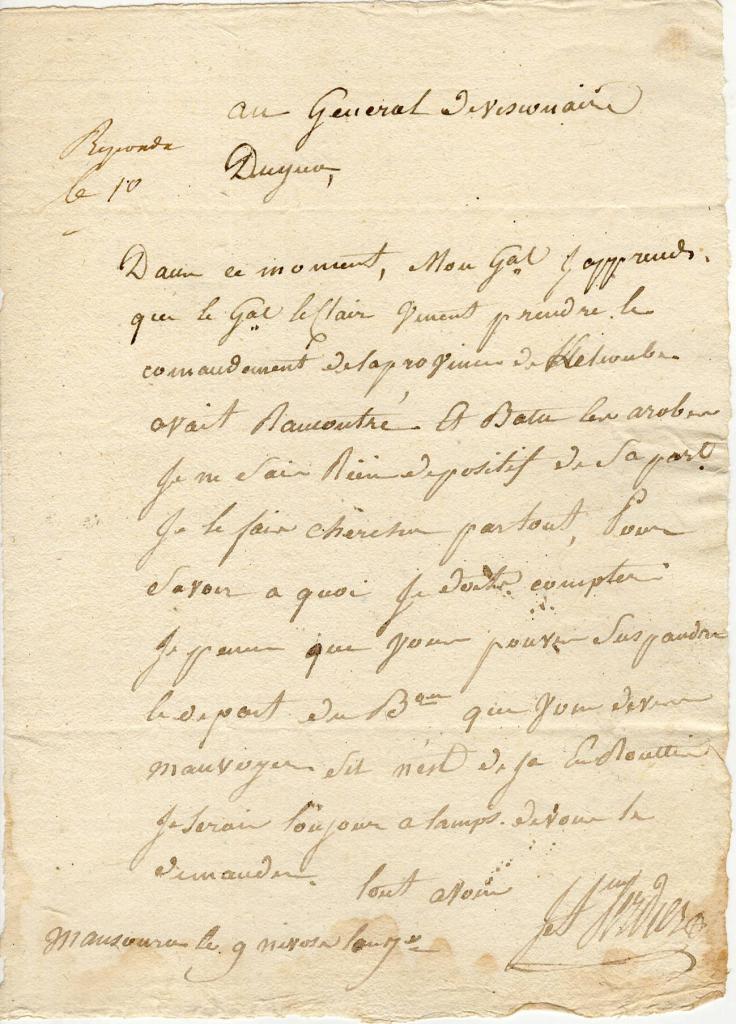 au General Devisionaire
Reponda
le 10
Dugua,
Dans ce moment, Mon Gal J'apprends
que le Gal leClair Venent prendre le
comandement de la province de
avait Rancontré Et Batu les arabes
Je ne Sais Rien de positif de Sa part
Je le fais chercher partout, Pour
Savoir a quoi Je dois compter
Je pense que vous pouvez Suspandre
le depart du Bon que Vous devez
mauvoyer Sil n'est deja En Routte
Je Serais toujours a tamps de vous le
demander.
tout a vous
Verdier
Mansoura le 9 nivose lan 7e